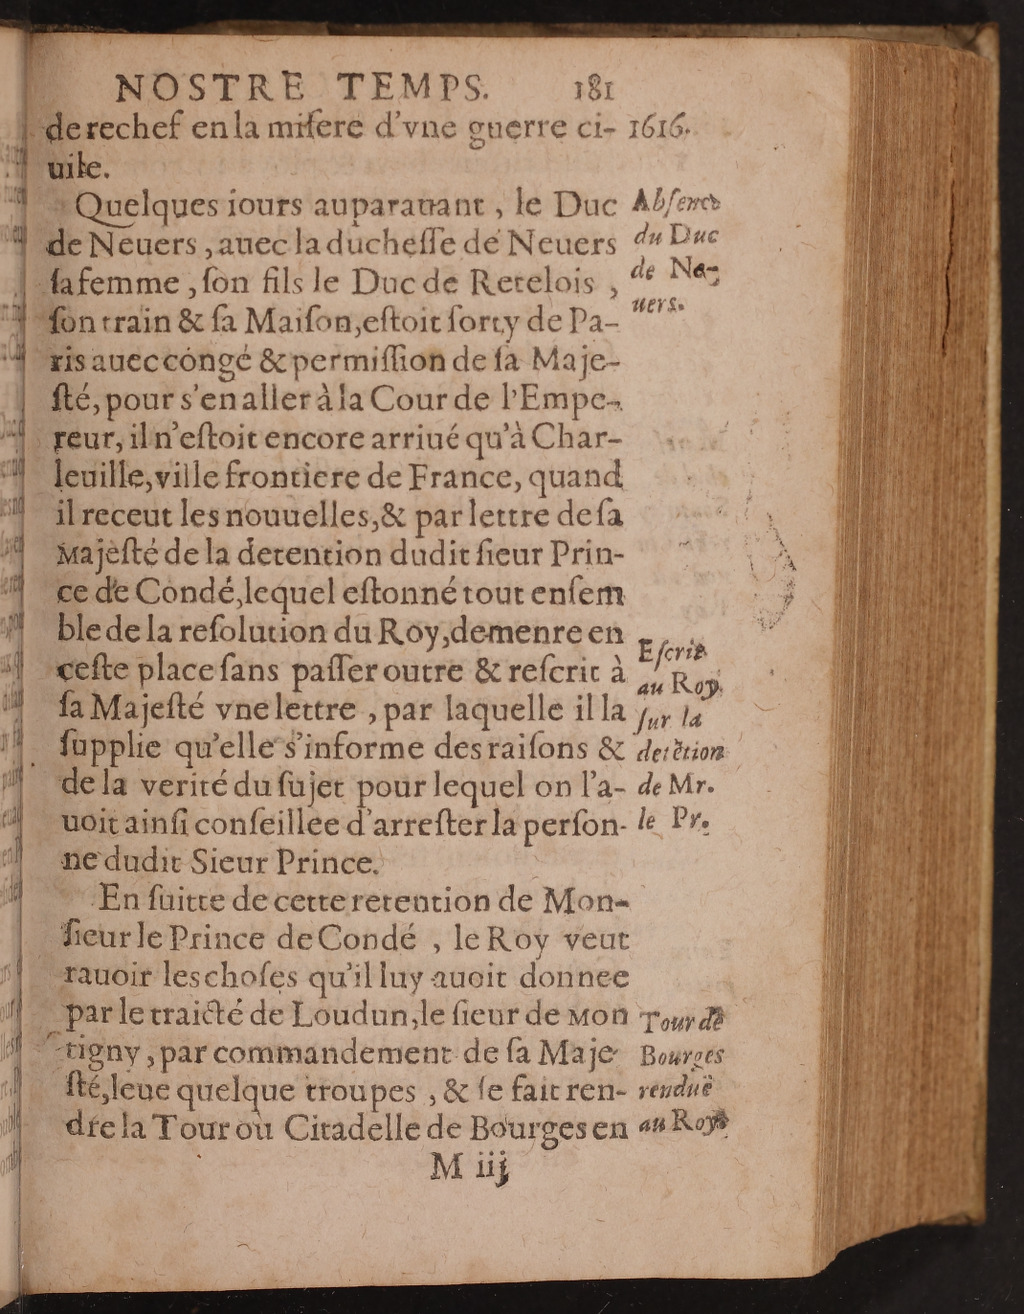 NOSTRE TEMPS. 181
derechef en la misere d'vne guerre ci- 1616.
uile.
Quelques iours auparauant, le Duc
de Neuers, auec la duchesse de Neuers
sa femme, son fils le Duc de Retelois,
son train & sa Maison, estoit sorty de Pa-
ris auec congé & permission de sa Maje-
sté, pour s'en aller à la Cour de l'Empe-
reur, il n'estoit encore arriué qu'à Char-
leuille, ville frontiere de France, quand
il receut les nouuelles, & par lettre de sa
Majesté de la detention dudit sieur Prin-
ce de Condé, lequel estonné tout ensem
ble de la resolution du Roy, demenre en
ceste place sans passer outre & rescrit à
sa Majesté vne lettre, par laquelle il la
supplie qu'elle s'informe des raisons &
de la verité du sujet pour lequel on l'a-
uoit ainsi conseillée d'arrester la person-
ne dudit Sieur Prince.
En suitte de cette retention de Mon-
sieur le Prince de Condé, le Roy veut
rauoir les choses qu'il luy auoit donnee
par le traicté de Loudun, le sieur de Mon
tigny, par commandement de sa Maje
sté, leue quelque troupes, & se fait ren-
dre la Tour où Citadelle de Bourges en
M iij
Absence
du Duc
de Ne-
uers.
Escrit
au Roy.
sur la
detẽtion
de Mr.
le Pr.
Tour de
Bourges
renduë
au Roy